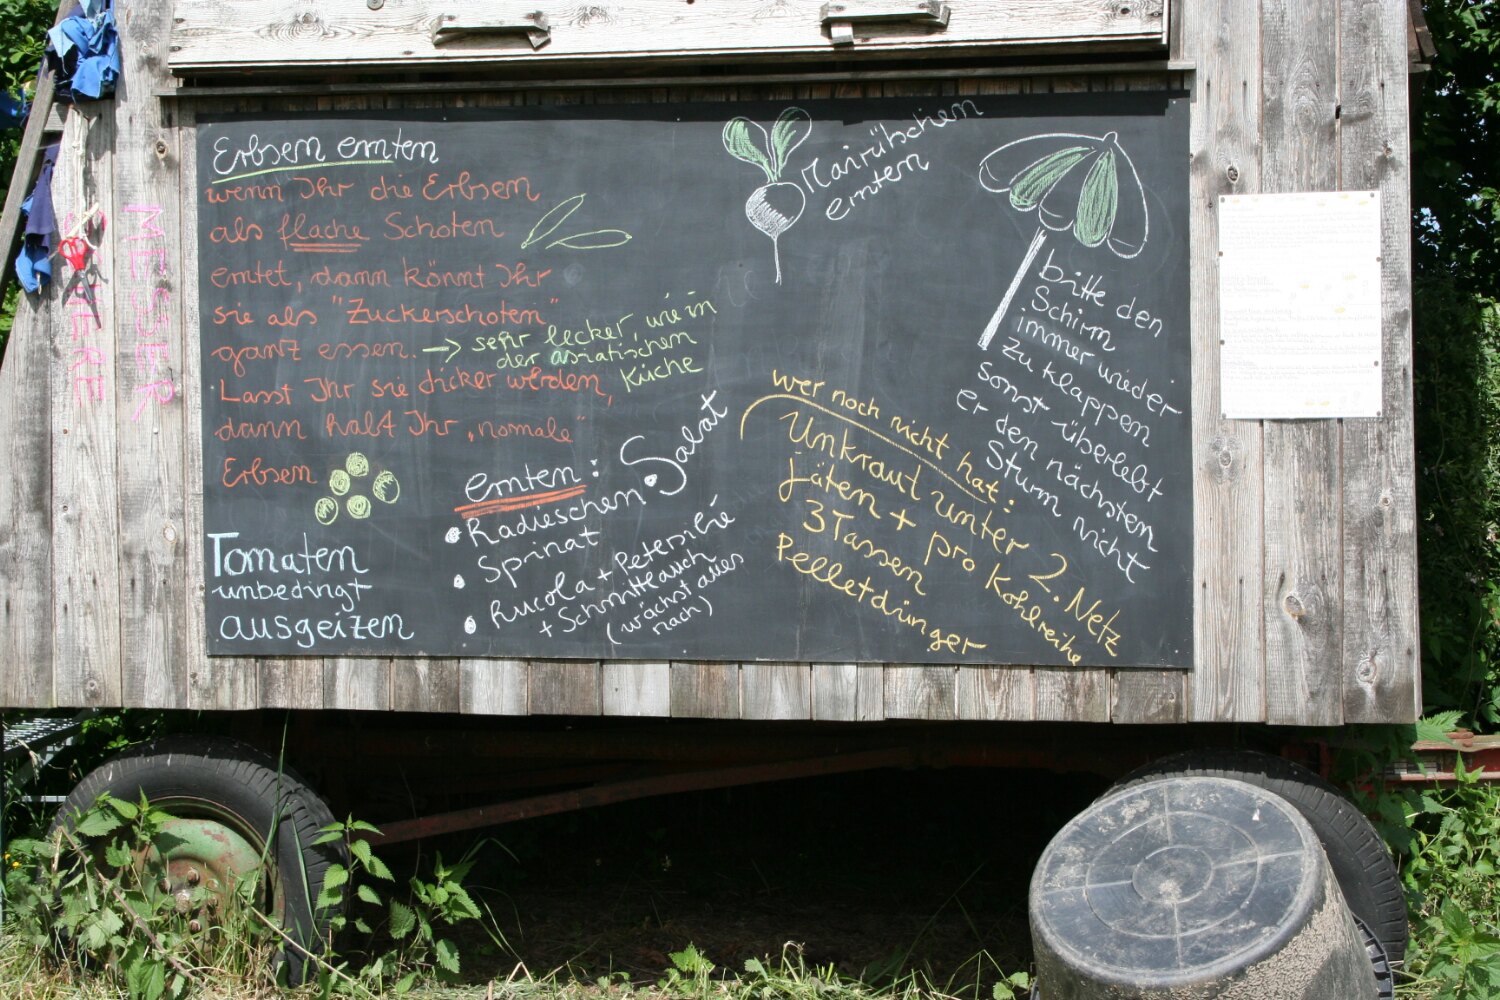 Erbsen ernten
wenn Ihr die Erbsen
als flache Schoten
erntet, dann könnt Ihr
sie als "Zuckerschoten"
ganz essen. → sehr lecker, wie in
der asiatischen
Küche
Lasst Ihr sie dicker werden,
dann habt Ihr „normale"
Erbsen
Tomaten
unbedingt
ausgeizen
ernten:
• Salat
• Radieschen
• Spinat
• Rucola + Petersilie
+ Schnittlauch
(wächst alles
nach)
Mairübschen
ernten
bitte den
Schirm
immer wieder
zu klappen
sonst überlebt
er den nächsten
Sturm nicht
wer noch nicht hat:
Unkraut unter 2. Netz
jäten + pro Kohlreihe
3 Tassen
Pelletdünger
MESSER